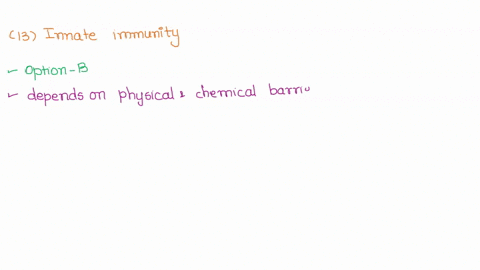 (13) Innate immunity
- Option-B
- depends on physical & chemical barri